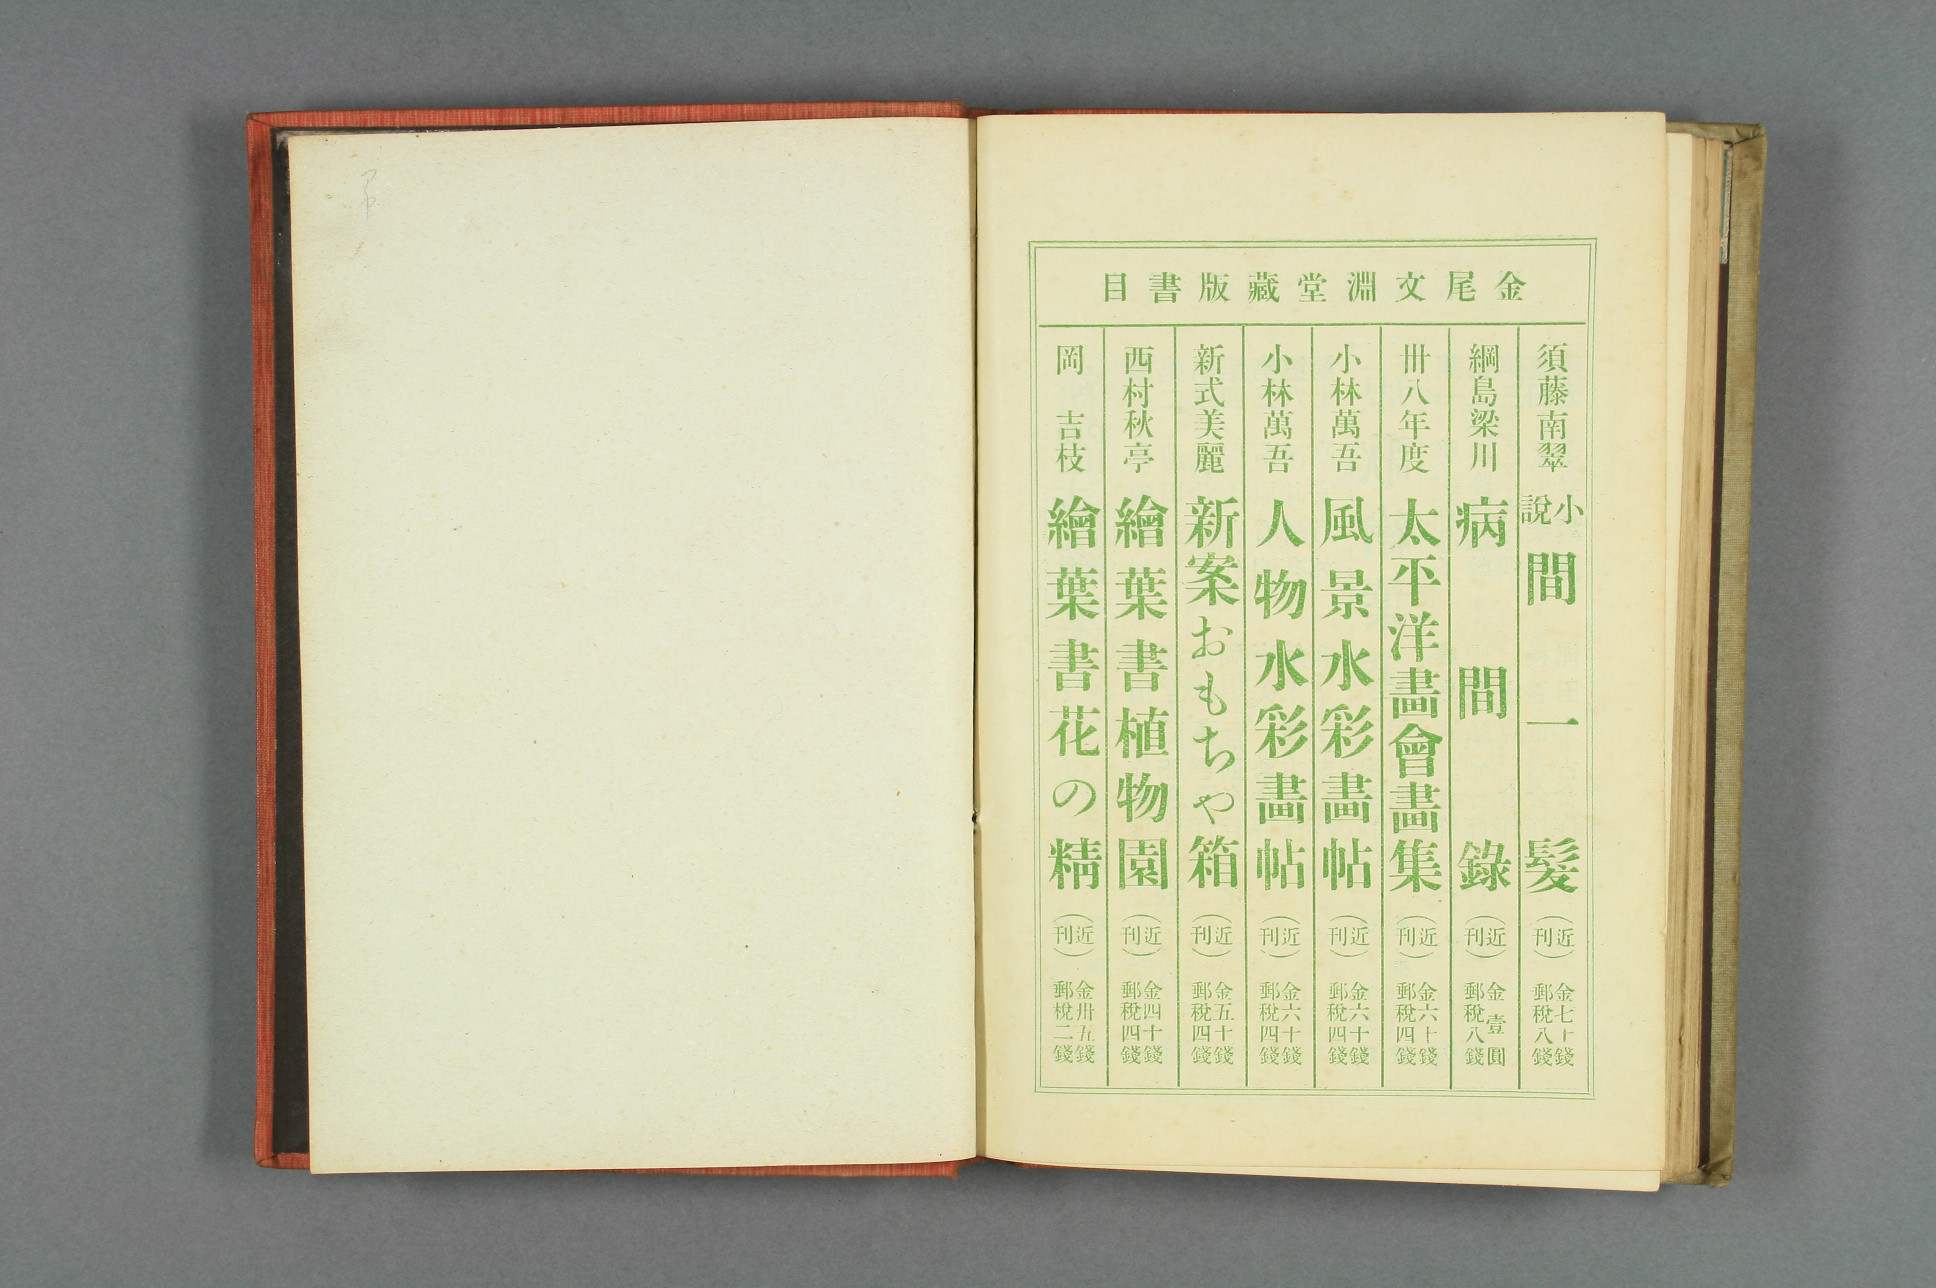 金尾文淵堂藏版書目
須藤南翠 小説 間一髮 (近刊) 金七十錢 郵税八錢
綱島梁川 病間錄 (近刊) 金壹圓 郵税八錢
卅八年度 太平洋畫會畫集 (近刊) 金六十錢 郵税四錢
小林萬吾 風景水彩畫帖 (近刊) 金六十錢 郵税四錢
小林萬吾 人物水彩畫帖 (近刊) 金六十錢 郵税四錢
新式美麗 新案おもちや箱 (近刊) 金五十錢 郵税四錢
西村秋亭 繪葉書植物園 (近刊) 金四十錢 郵税四錢
岡吉枝 繪葉書花の精 (近刊) 金卅五錢 郵税二錢